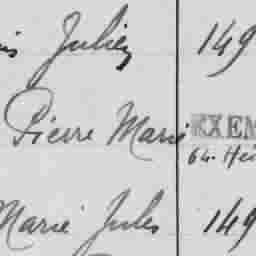 is Julien 149
Pierre Marie EXEM
64. Hei
Marie Jules 149